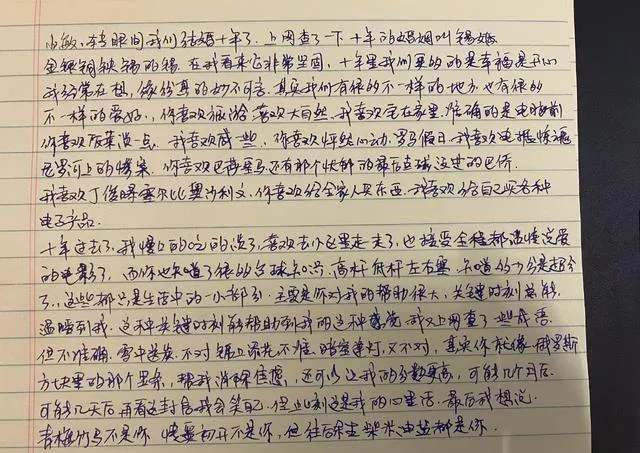 小敏,转眼间我们结婚十年了.上网查了一下十年的婚姻叫锡婚
金银铜铁锡的锡.在我看来它非常坚固,十年里我们更多的是幸福是开心
我经常在想,缘份真的妙不可言.其实我们有很多不一样的地方也有很多
不一样的爱好,你喜欢旅游喜欢大自然,我喜欢宅在家里准确的是电脑前
你喜欢饭菜淡一点.我喜欢咸一些,你喜欢怦然心动.罗马假日.我喜欢电锯惊魂
尼罗河上的惨案.你喜欢巴蒂罗马还有那个快船的最后五球
我喜欢丁俊晖塞尔比奥沙利文,你喜欢给全家人买东西.我喜欢给自己买各种
电子产品.
十年过去了,我慢慢的吃的淡了,喜欢去小区里走走了,也接受全程都温情浪漫
的电影了,而你也知道了很多台球知识.高杆低杆左右塞.知道的十分是超分
了,这些都只是生活中的一小部分.主要是你对我的帮助很大,关键时刻总能
温暖到我.这种关键时刻能帮助到我的这种感觉我又上网查了一些成语
但不准确.雪中送炭.不对锦上添花不准暗室逢灯.又不对,其实你就像俄罗斯
方块里的那个竖条,帮我消除焦虑,还可以让我的分数更高,可能几个月后.
可能几天后再看这封信我会笑自己.但此刻这是我的心里话.最后我想说.
青梅竹马不是你 情窦初开不是你,但往后余生柴米油盐都是你.